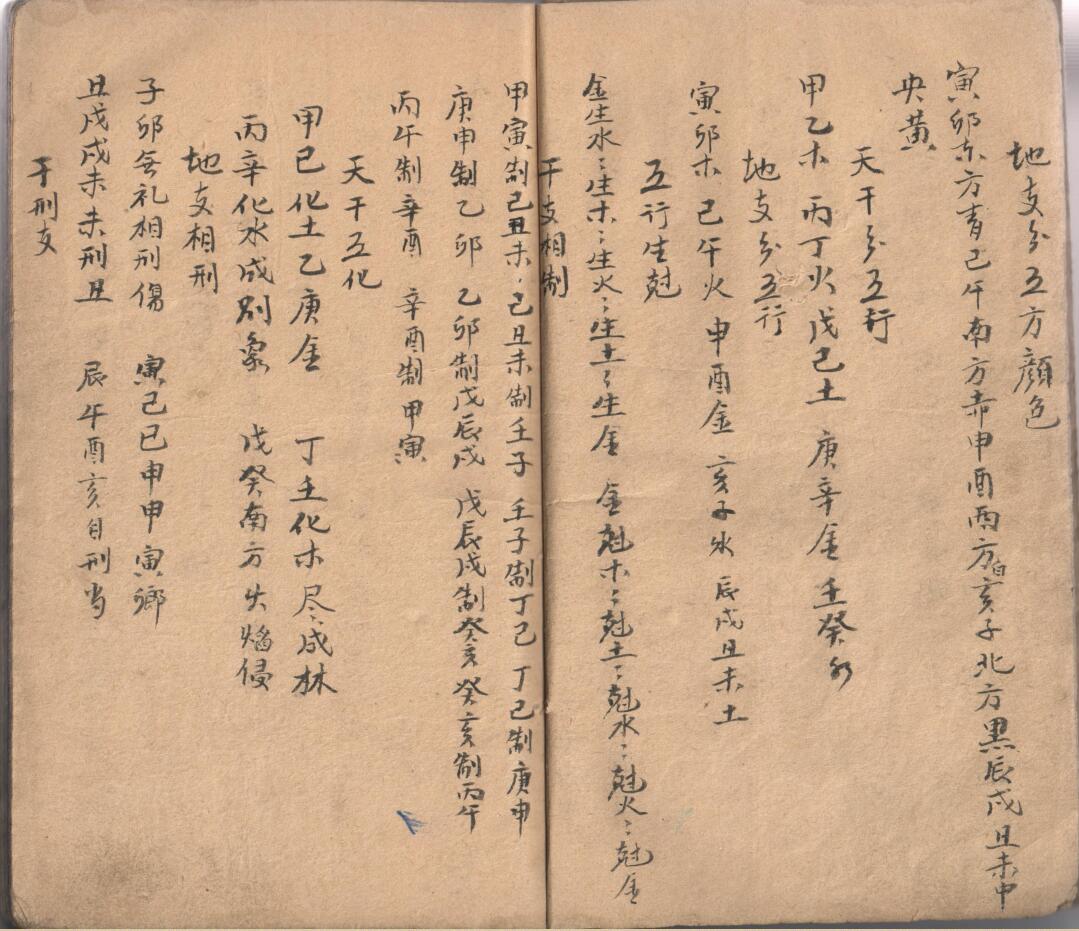 地支分五方顔色
寅卯东方青己午南方赤申酉西方白亥子北方黑辰戌丑未中
央黄
天干分五行
甲乙木 丙丁火戊己土 庚辛金 壬癸水
地支分五行
寅卯木 己午火 申酉金 亥子水 辰戌丑未土
五行生尅
金生水〻生木〻生火〻生土〻生金 金尅木〻尅土〻尅水〻尅火〻尅金
干支相制
甲寅制己丑未·己丑未制壬子 壬子制丁己 丁己制庚申
庚申制乙卯 乙卯制戊辰戌 戊辰戌制癸亥 癸亥制丙午
丙午制辛酉 辛酉制甲寅
天干五化
甲己化土乙庚金 丁壬化木尽成林
丙辛化水成别象 戊癸南方火焰侵
地支相刑
子卯無礼相刑傷 寅己巳申申寅鄉
丑戌戌未未刑丑 辰午酉亥自刑当
干刑支